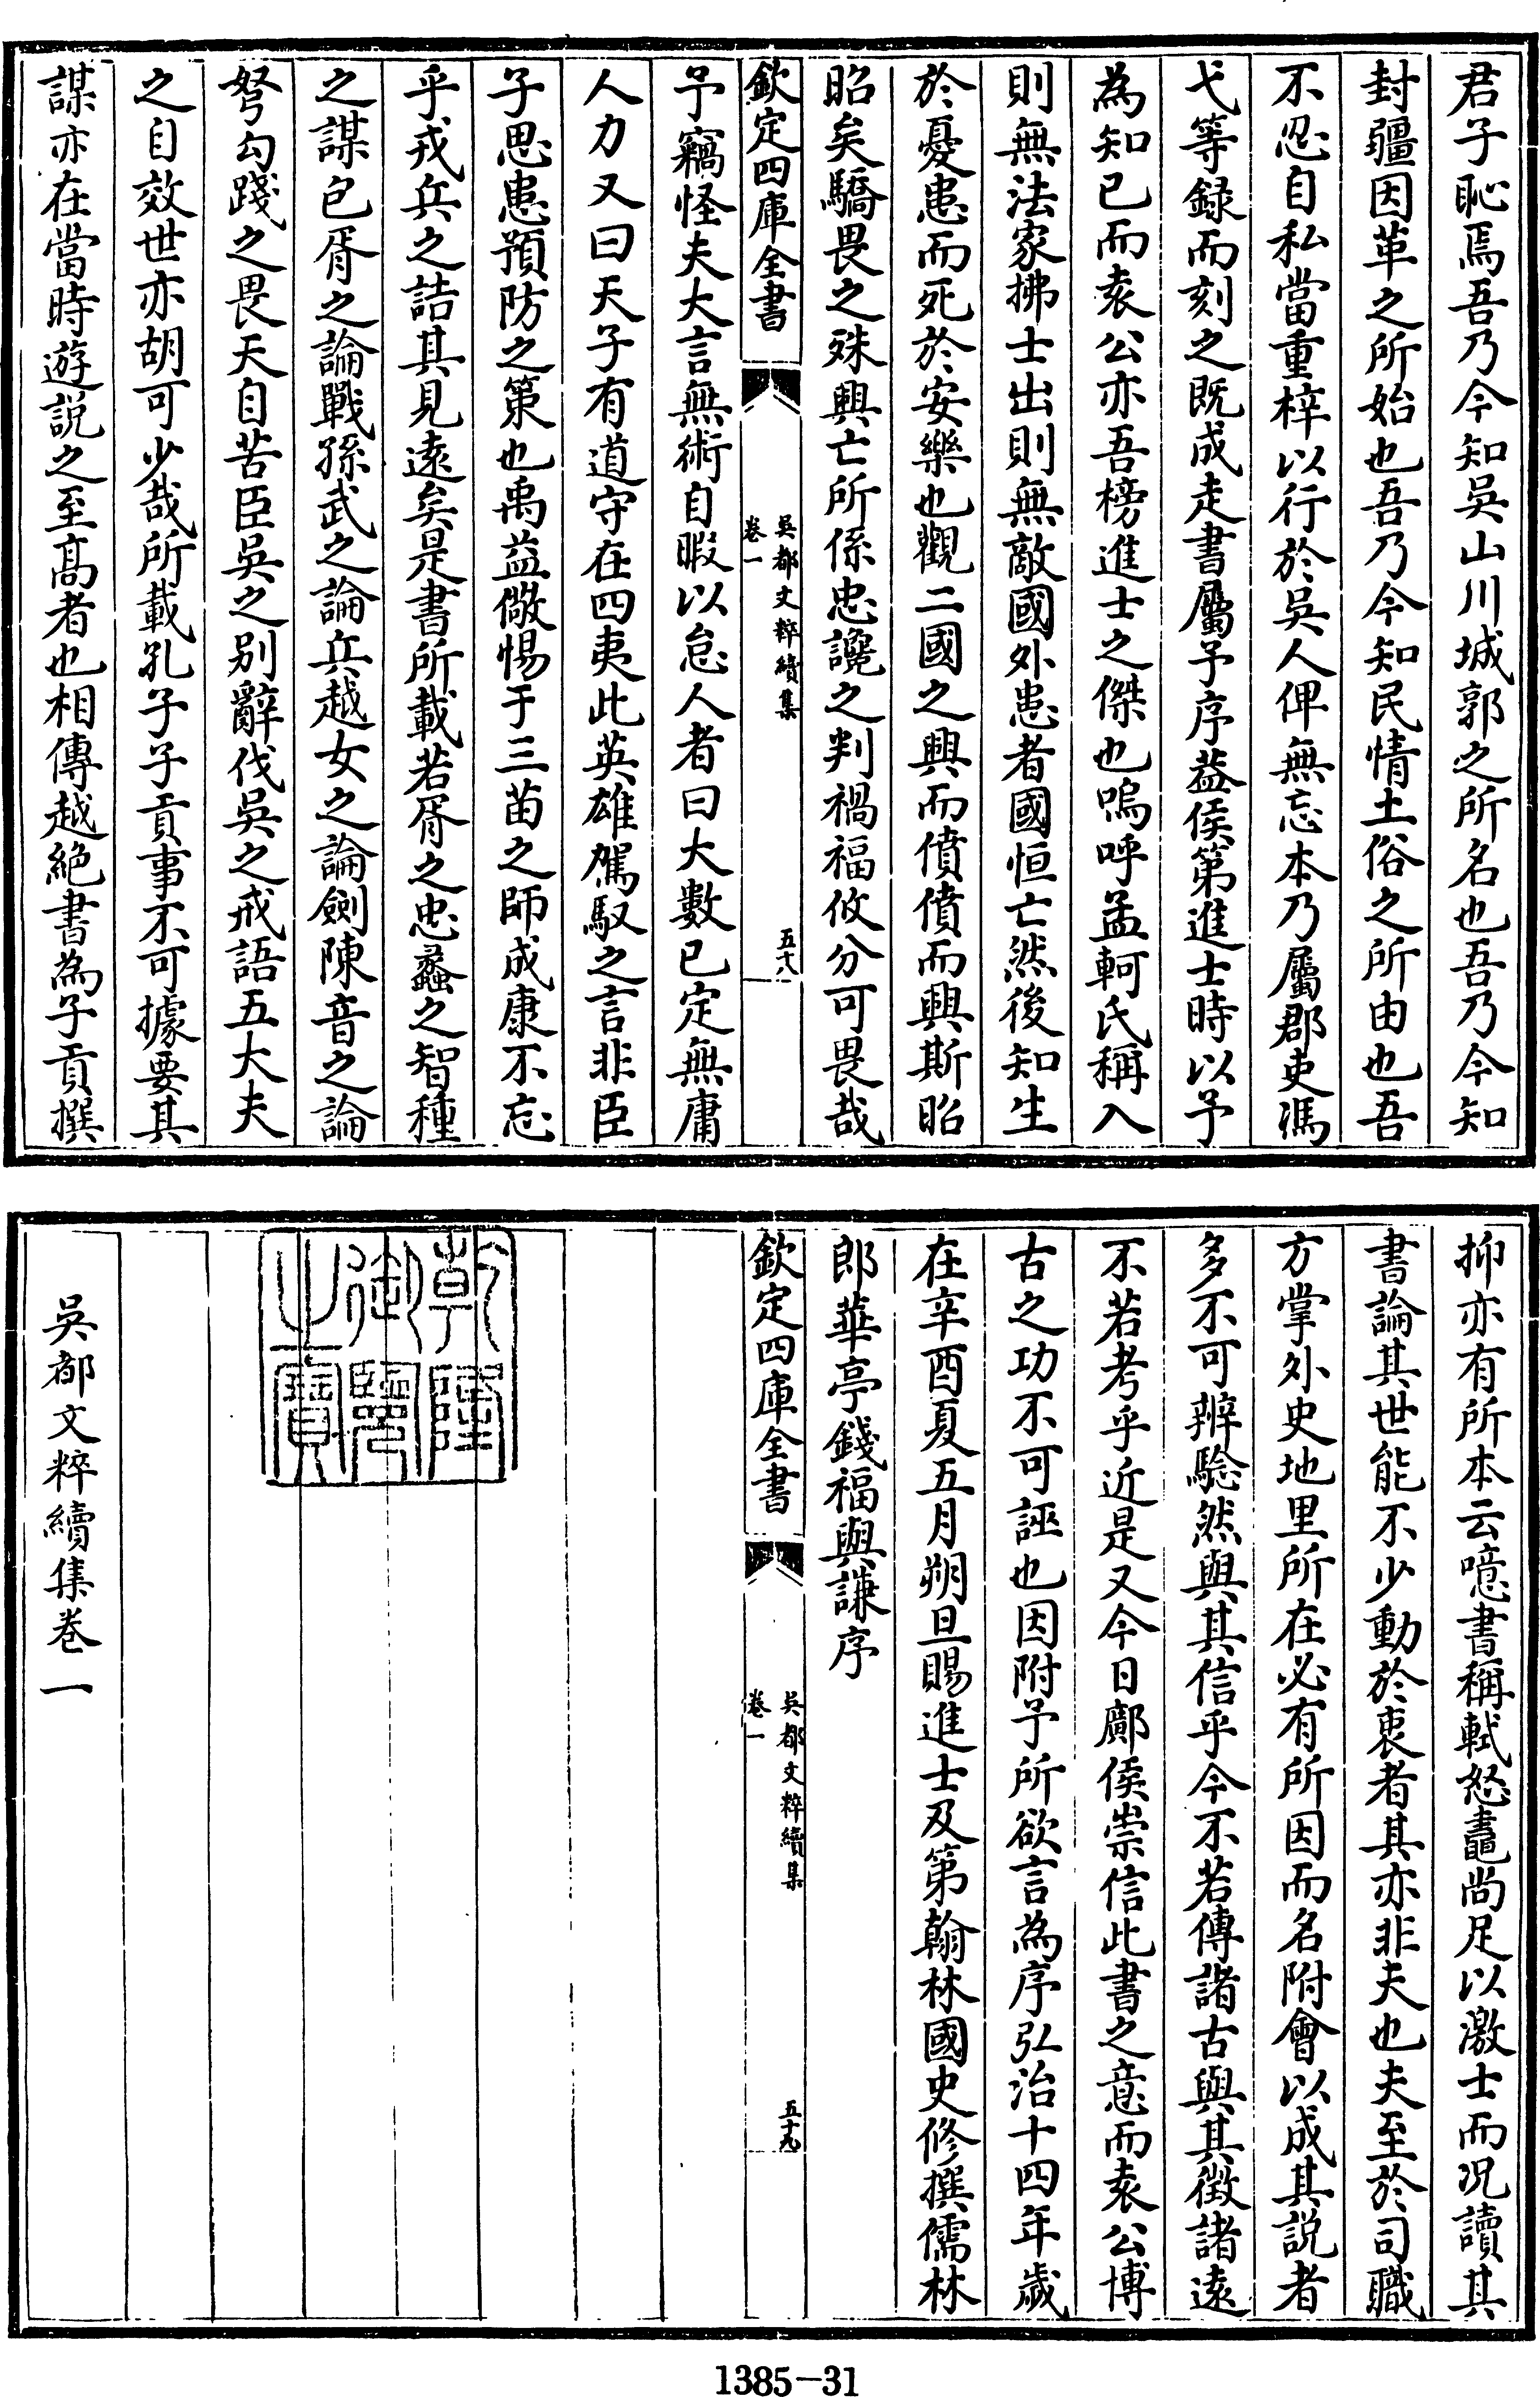 君子恥焉吾乃今知吳山川城郭之所名也吾乃今知
封疆因革之所始也吾乃今知民情土俗之所由也吾
不忍自私當重梓以行於吳人俾無忘本乃屬郡吏馮
弋等録而刻之既成走書屬予序葢侯第進士時以予
為知已而袁公亦吾榜進士之傑也嗚呼孟軻氏稱入
則無法家拂士出則無敵國外患者國恒亡然後知生
於憂患而死於安樂也觀二國之興而僨僨而興斯昭
昭矣驕畏之殊興亡所係忠讒之判禍福攸分可畏哉
欽定四庫全書
吳都文粹續集
卷一
五十八
予竊怪夫大言無術自暇以怠人者曰大數已定無庸
人力又曰天子有道守在四夷此英雄駕馭之言非臣
子思患預防之策也禹益儆惕于三苗之師成康不忘
乎戎兵之詰其見遠矣是書所載若胥之忠蠡之智種
之謀包胥之論戰孫武之論兵越女之論劍陳音之論
弩勾踐之畏天自苦臣吳之别辭伐吳之戒語五大夫
之自效世亦胡可少哉所載孔子子貢事不可據要其
謀亦在當時遊説之至高者也相傳越絶書為子貢撰
抑亦有所本云噫書稱軾怒鼃尚足以激士而况讀其
書論其世能不少動於衷者其亦非夫也夫至於司職
方掌外史地里所在必有所因而名附會以成其説者
多不可辨騐然與其信乎今不若傳諸古與其徴諸遠
不若考乎近是又今日鄺侯崇信此書之意而袁公博
古之功不可誣也因附予所欲言為序弘治十四年歲
在辛酉夏五月朔旦賜進士及第翰林國史修撰儒林
郎華亭錢福與謙序
欽定四庫全書
吳都文粹續集
卷一
五十九
乾隆
御覽
之寶
吳都文粹續集卷一
1385-31